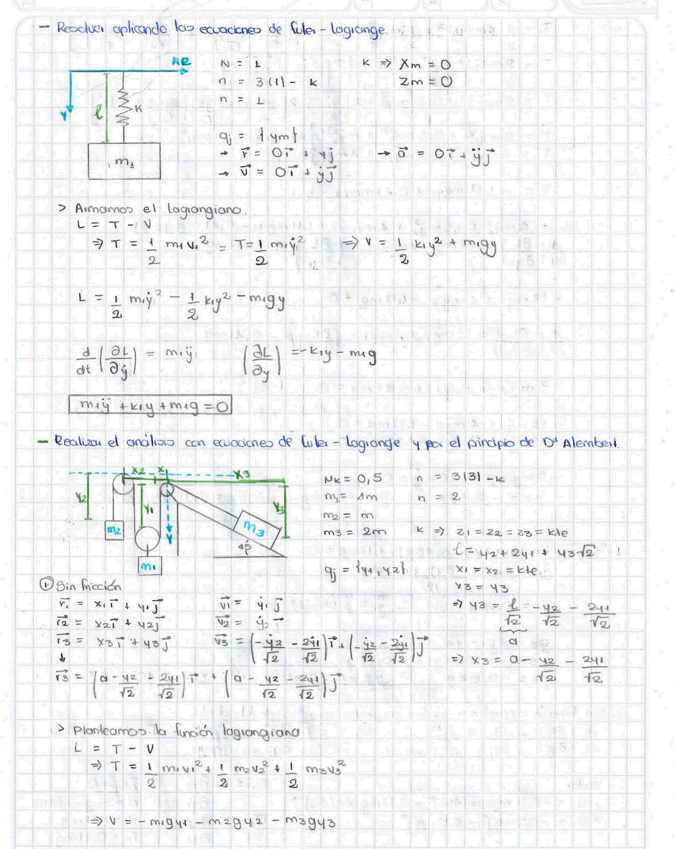 - Resolver aplicando las ecuaciones de Euler-Lagrange.
N = 1
n = 3(1) - k
n = 1
k ⇒ Xm = 0
Zm = 0
y
l
K
m1
qj = {ym}
→ r⃗ = 0i⃗ + yj
→ v⃗ = 0i⃗ + ẏj⃗
→ a⃗ = 0i⃗ + ÿj⃗
> Armamos el lagrangiano.
L = T - V
⇒ T = 1/2 m1v1² = T = 1/2 m1ẏ² ⇒ V = 1/2 k1y² + m1gy
L = 1/2 m1ẏ² - 1/2 k1y² - m1gy
d/dt (∂L/∂ẏ) = m1ÿ (∂L/∂y) = -k1y - m1g
m1ÿ + k1y + m1g = 0
- Realizar el análisis con ecuaciones de Euler-Lagrange y por el principio de D'Alembert.
x2 x1 x3
y2 y1 y y3
m2 m1 m3
45
Mk = 0,5
m1 = 4m
m2 = m
m3 = 2m
qj = {y1, y2}
n = 3(3) - k
n = 2
k ⇒ z1 = z2 = z3 = kte
l = y2 + 2y1 + y3√2 !
x1 = x2 = kte
x3 = y3
⇒ y3 = l/√2 - y2/√2 - 2y1/√2
a
⇒ x3 = a - y2/√2 - 2y1/√2
① Sin fricción
r1⃗ = x1i⃗ + y1j⃗ v1⃗ = ẏ1 j⃗
r2⃗ = x2i⃗ + y2j⃗ v2⃗ = ẏ2 j⃗
r3⃗ = x3i⃗ + y3j⃗ v3⃗ = (-ẏ2/√2 - 2ẏ1/√2)i⃗ + (-ẏ2/√2 - 2ẏ1/√2)j⃗
↓
r3⃗ = (a - y2/√2 - 2y1/√2)i⃗ + (a - y2/√2 - 2y1/√2)j⃗
> Planteamos la función lagrangiana
L = T - V
⇒ T = 1/2 m1v1² + 1/2 m2v2² + 1/2 m3v3²
⇒ V = -m1gy1 - m2gy2 - m3gy3